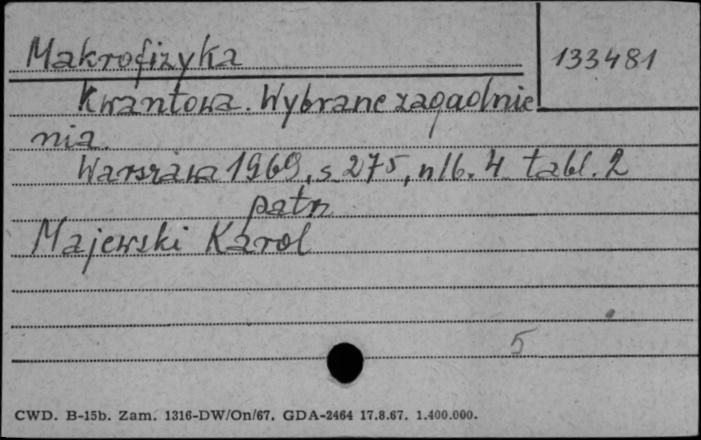 Makrofizyka
133481
Kwantowa. Wybrane zagadnie
nia.
Warszawa 1969, s. 275, nlb. 4 tabl. 2
patrz
Majewski Karol
5
CWD. B-15b. Zam. 1316-DW/On/67. GDA-2464 17.8.67. 1.400.000.